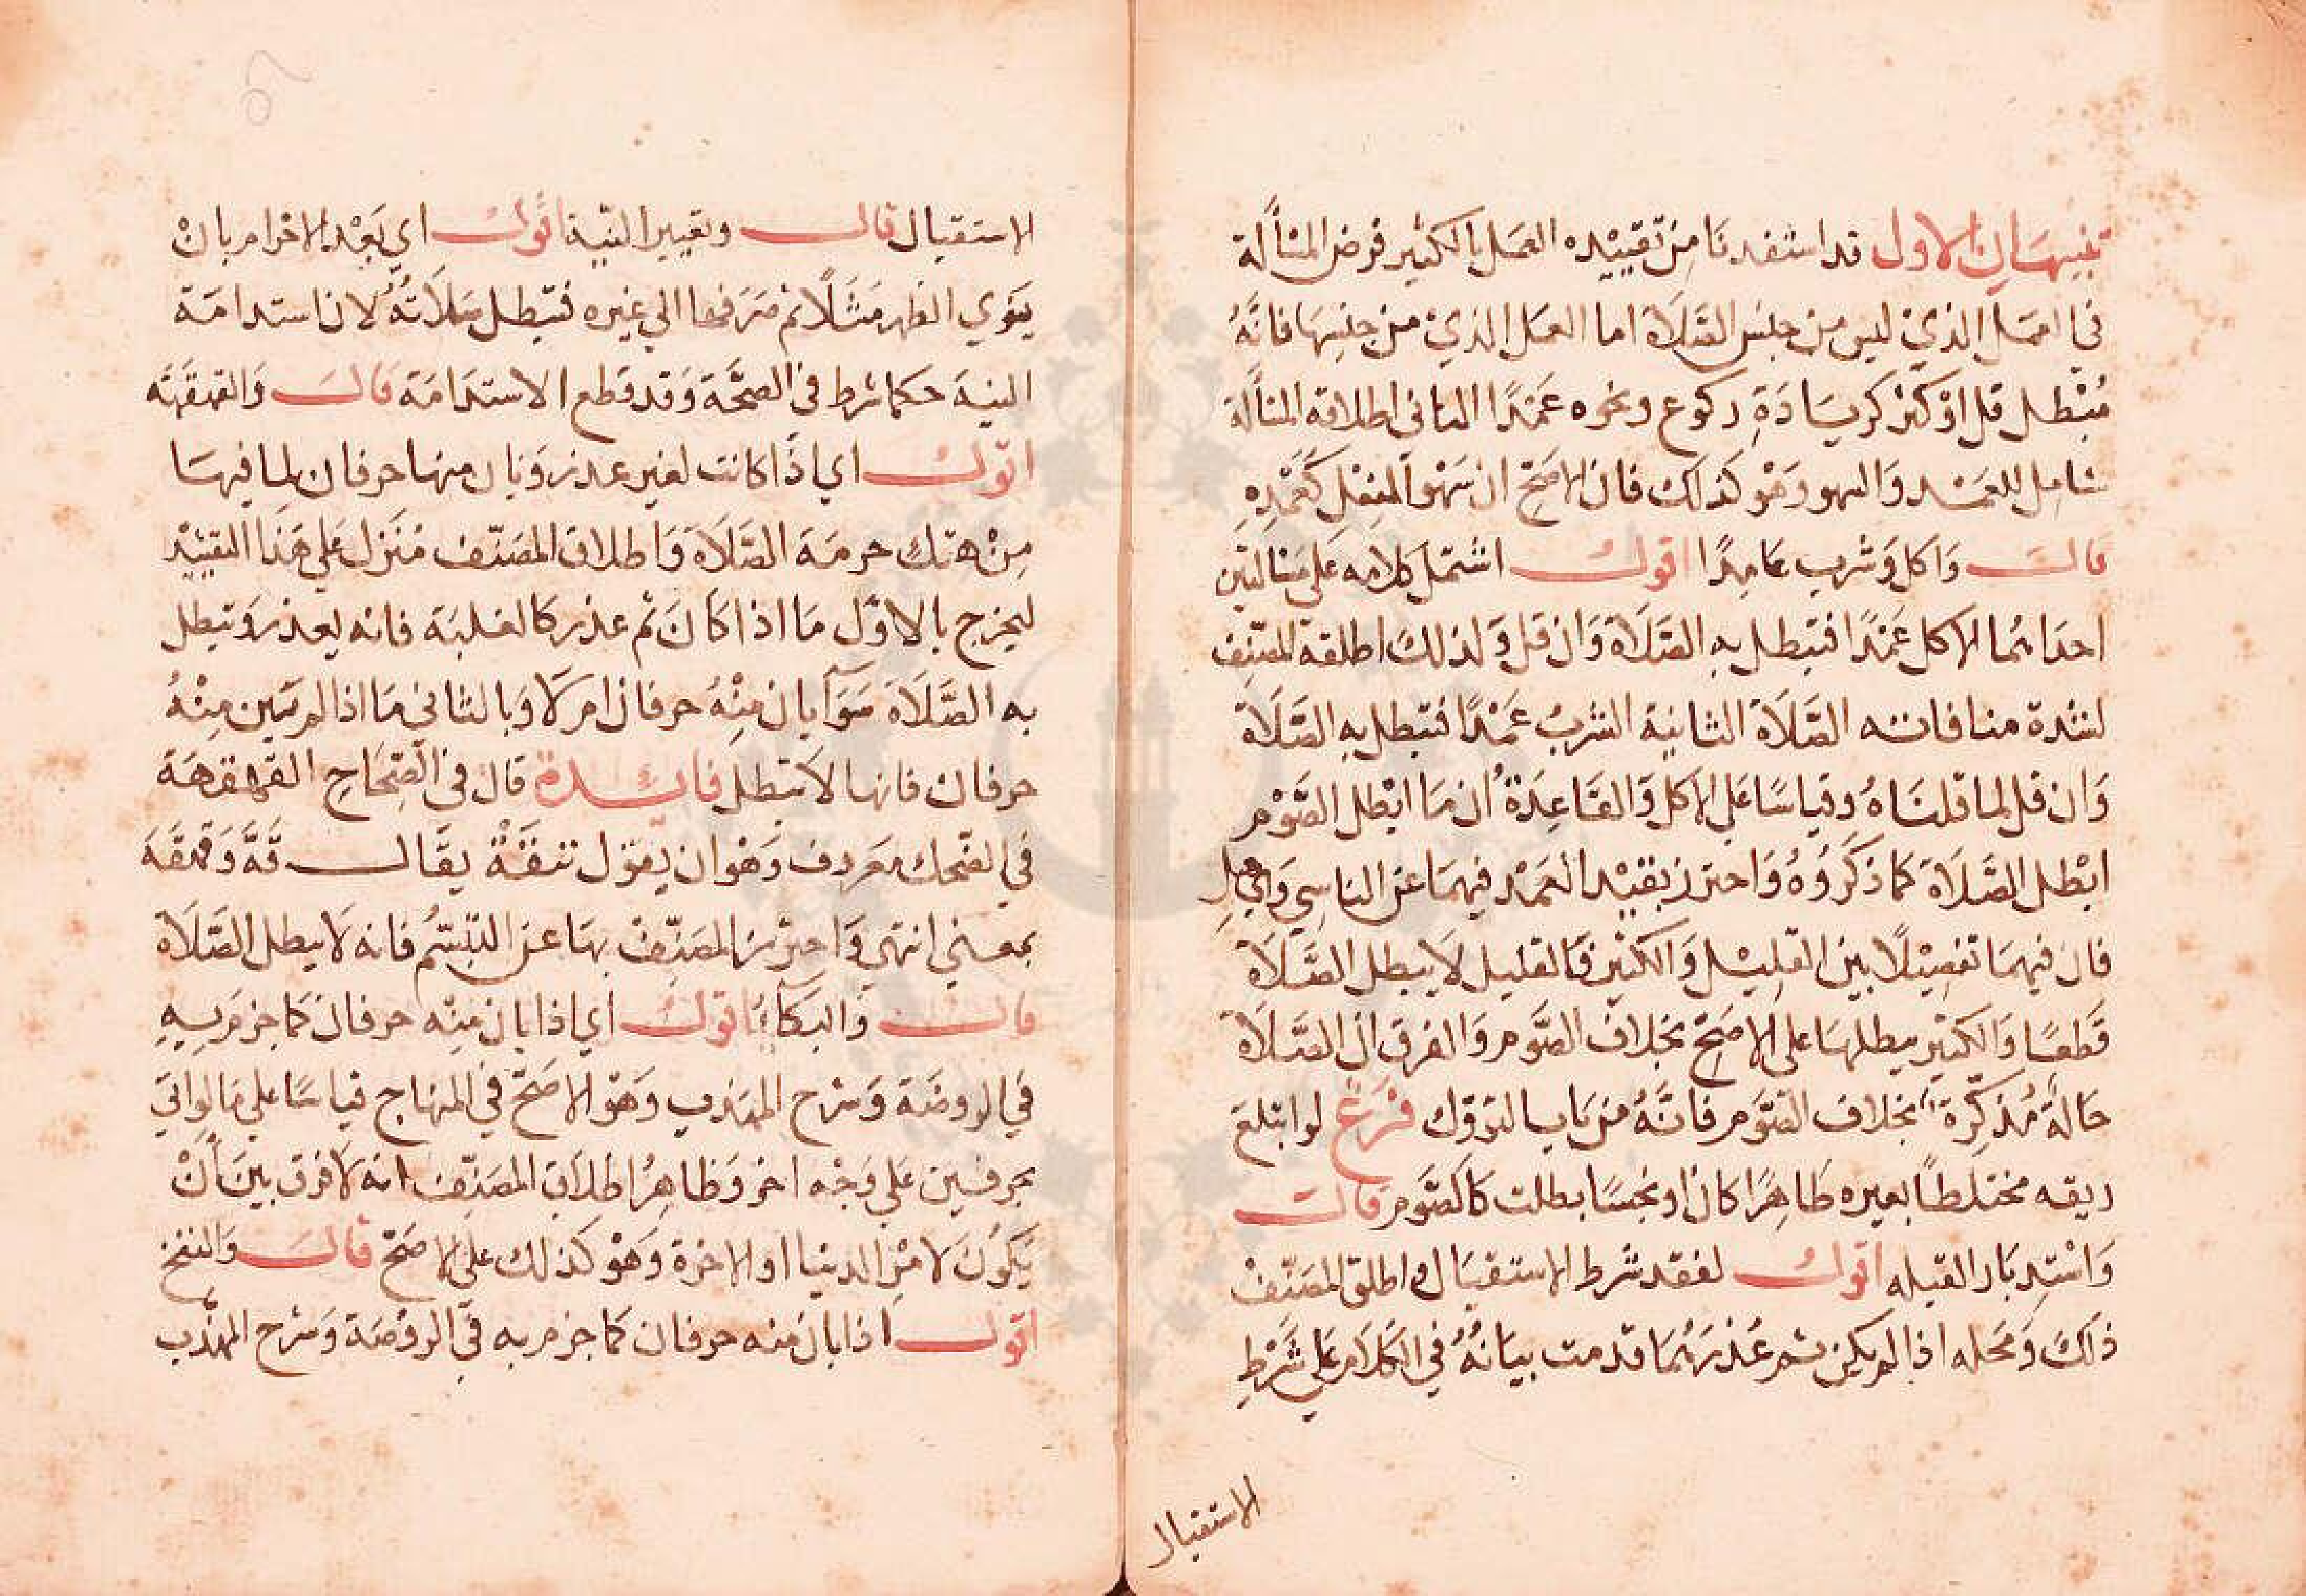 تنبيهان الاول قد استفدنا من تقييده العمل بالكثير فرض المسألة
في العمل الذي ليس من جنس الصلاة اما العمل الذي من جنسها فانه
مبطل قل او كثر كزيادة ركوع ونحوه عمدا الثاني اطلاقه المسألة
شامل للعمد والسهو وهو كذلك فان الاصح ان سهو الفعل كعمده
قال واكل وشرب عامدا اقول اشتمل كلامه على مسألتين
احداهما الاكل عمدا فتبطل به الصلاة وان قل ولذلك اطلقه المصنف
لشدة منافاته الصلاة الثانية الشرب عمدا فتبطل به الصلاة
وان قل لما قلناه وقياسا على الاكل والقاعدة ان ما ابطل الصوم
ابطل الصلاة كما ذكروه واحترز بقييد العمد فيهما عن الناسي والجاهل
فان فيهما تفصيلا بين القليل والكثير فالقليل لا يبطل الصلاة
قطعا والكثير يبطلها على الاصح بخلاف الصوم والفرق ان الصلاة
حالة مذكرة بخلاف الصوم فانه من باب التروك فرع لو ابتلع
ريقه مختلطا بغيره طاهرا كان او نجسا بطلت كالصوم قال
واستدبار القبله اقول لفقد شرط الاستقبال واطلق المصنف
ذلك ومحله اذا لم يكن ثم عذر كما قدمت بيانه في الكلام على شرط
الاستقبال
الاستقبال قال وتغيير النية اقول اي بعد الاحرام بان
ينوي الظهر مثلا ثم صرفها الي غيره فتبطل صلاته لان استدامة
النية حكما شرط في الصحة وقد قطع الاستدامة قال والقهقهة
اقول اي اذا كانت لغير عذر وبان منها حرفان لما فيها
من هتك حرمة الصلاة واطلاق المصنف منزل علي هذا التقييد
ليخرج بالاول ما اذا كان ثم عذر كالغلبة فانه يعذر وتبطل
به الصلاة سوآ بان منه حرفان ام لا وبالثاني ما اذا لم يبن منه
حرفان فانها لا تبطل فائدة قال في الصحاح القهقهة
في الضحك معروف وهو ان يقول قه قه يقال قه وقهقه
بمعني انتهي واحترز المصنف بها عن التبسم فانه لا يبطل الصلاة
قال والبكآء اقول اي اذا بان منه حرفان كما جزم به
في الروضة وشرح المهذب وهو الاصح في المنهاج قياسا علي ما لو اتي
بحرفين علي وجه اخر وظاهر اطلاق المصنف انه لا فرق بين ان
يكون لامر الدنيا او الاخرة وهو كذلك على الاصح قال والنفخ
اقول اذا بان منه حرفان كما جزم به في الروضة وشرح المهذب